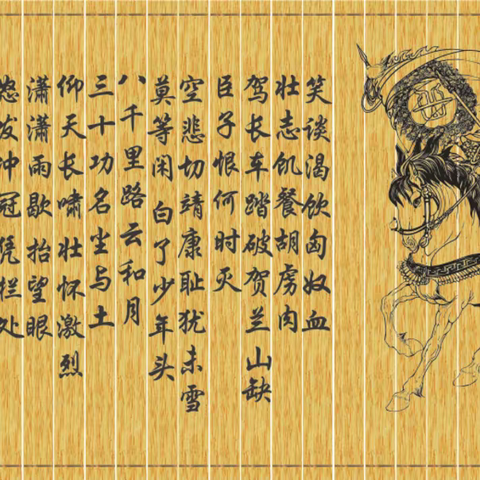 怒发冲冠凭栏处
潇潇雨歇抬望眼
仰天长啸壮怀激烈
三十功名尘与土
八千里路云和月
莫等闲白了少年头
空悲切靖康耻犹未雪
臣子恨何时灭
驾长车踏破贺兰山缺
壮志饥餐胡虏肉
笑谈渴饮匈奴血